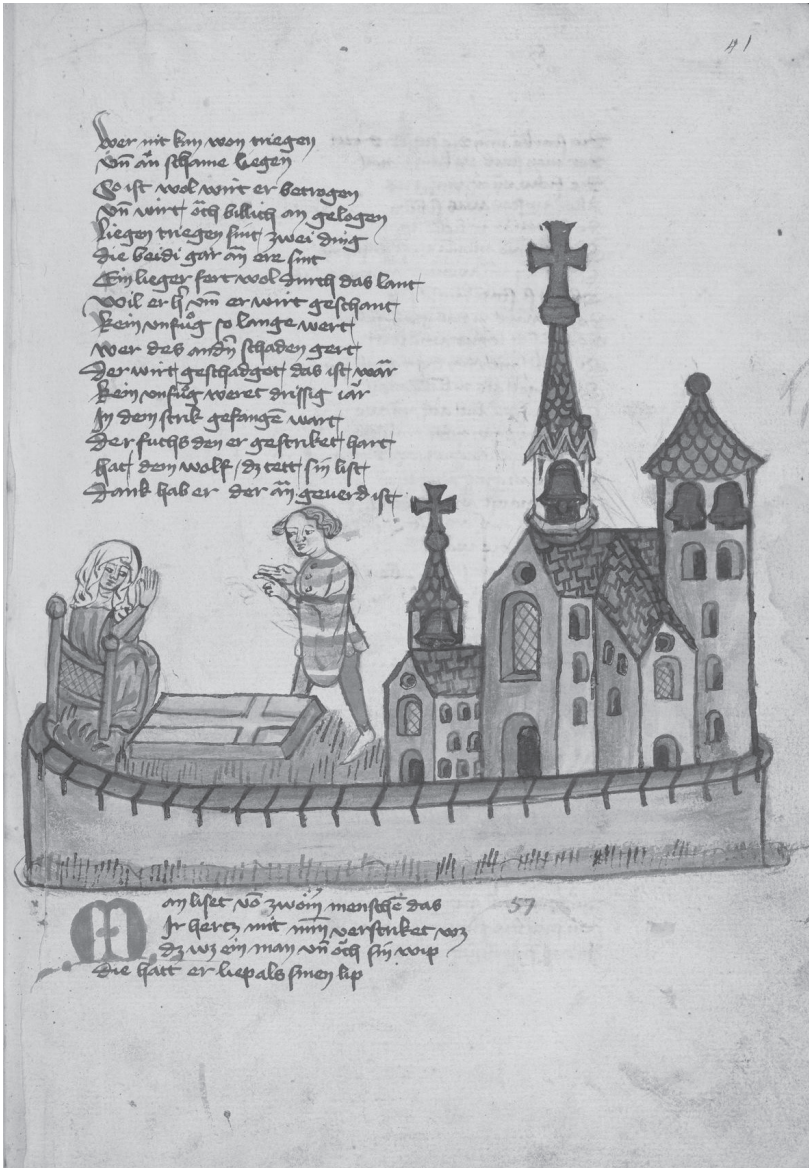 41
Wer nit kan von triegen
vn̄ ān schame liegen
So ist wol wirt er betrogen
vn̄ wirt ȯch billich an gelogen
Liegen triegen sint zwei ding
die beidi gar ān ere sint
Ein lieger fert wol durch das lant
wil er h̄ vm̄ er wirt geschant
kein vnfůg so lange wert
wer des andn̄ schaden gert
Der wirt geschadgot das ist wār
kein vnfůg weret drissig iār
In dem strik gefangē wart
Der fuchs den er gestriket hart
hat dem wolf dz tett sin list
Dank hab er der ān geuerd ist
Man liset vō zwöin menschē das
Ir hertz mit mīn verstriket wz
dz wz ein man vn̄ ȯch sin wip
die hatt er liep als sinen lip
57